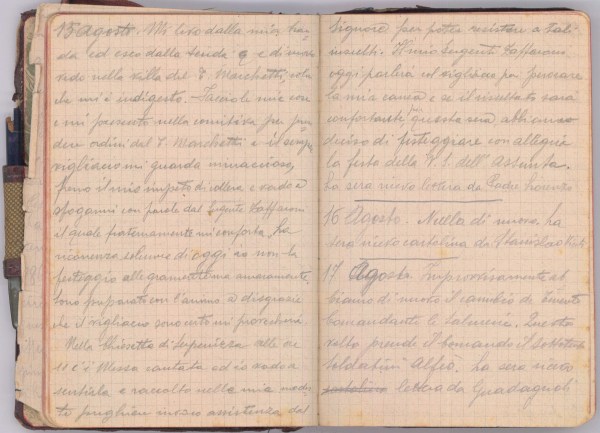 15 Agosto. Mi levo dalla mia bran-
da ed esco dalla tenda e di nuovo
vado nella valle del T. Marchetti, solo
che mi è indigesto. Faccio le mie cose
e mi presento nella comitiva per pren-
dere ordini del T. Marchetti e il
vigliacco mi guarda minaccioso,
freno il mio impeto di collera e vado a
sfogarmi con parole dal Sergente Zafferoni
il quale fraternamente mi conforta, ha
ricorrenza solenne di oggi io non la
festeggio allegramente ma amaramente,
sono preparato con l'animo a disgrazie
che il vigliacco sono certo mi procurerà
Nella Chiesetta di alle ore
11 c'è Messa cantata ed io vado a
sentirla e raccolto nella mia mode-
sta preghiera invoco assistenza dal
Signore per poter resistere a tali
Il mio Sergente Zafferoni
oggi parlerà col vigliacco per perorare
la mia causa e se il risultato sarà
confortante questa sera abbiamo
deciso di festeggiare con allegria
la festa della V. S. dell'Assunta.
ha sera ricevo lettera da Padre Lorenzo
16 Agosto. Nulla di nuovo. ha
sera ricevo cartolina da Stanislao
17 Agosto. Improvvisamente ab-
biamo di nuovo il cambio di Tenente
Comandante le Salmerie. Questa
volta prende il Comando il Sottotenente
Soldatini Alfio. ha sera ricevo
cartolina lettera da Guadagnoli